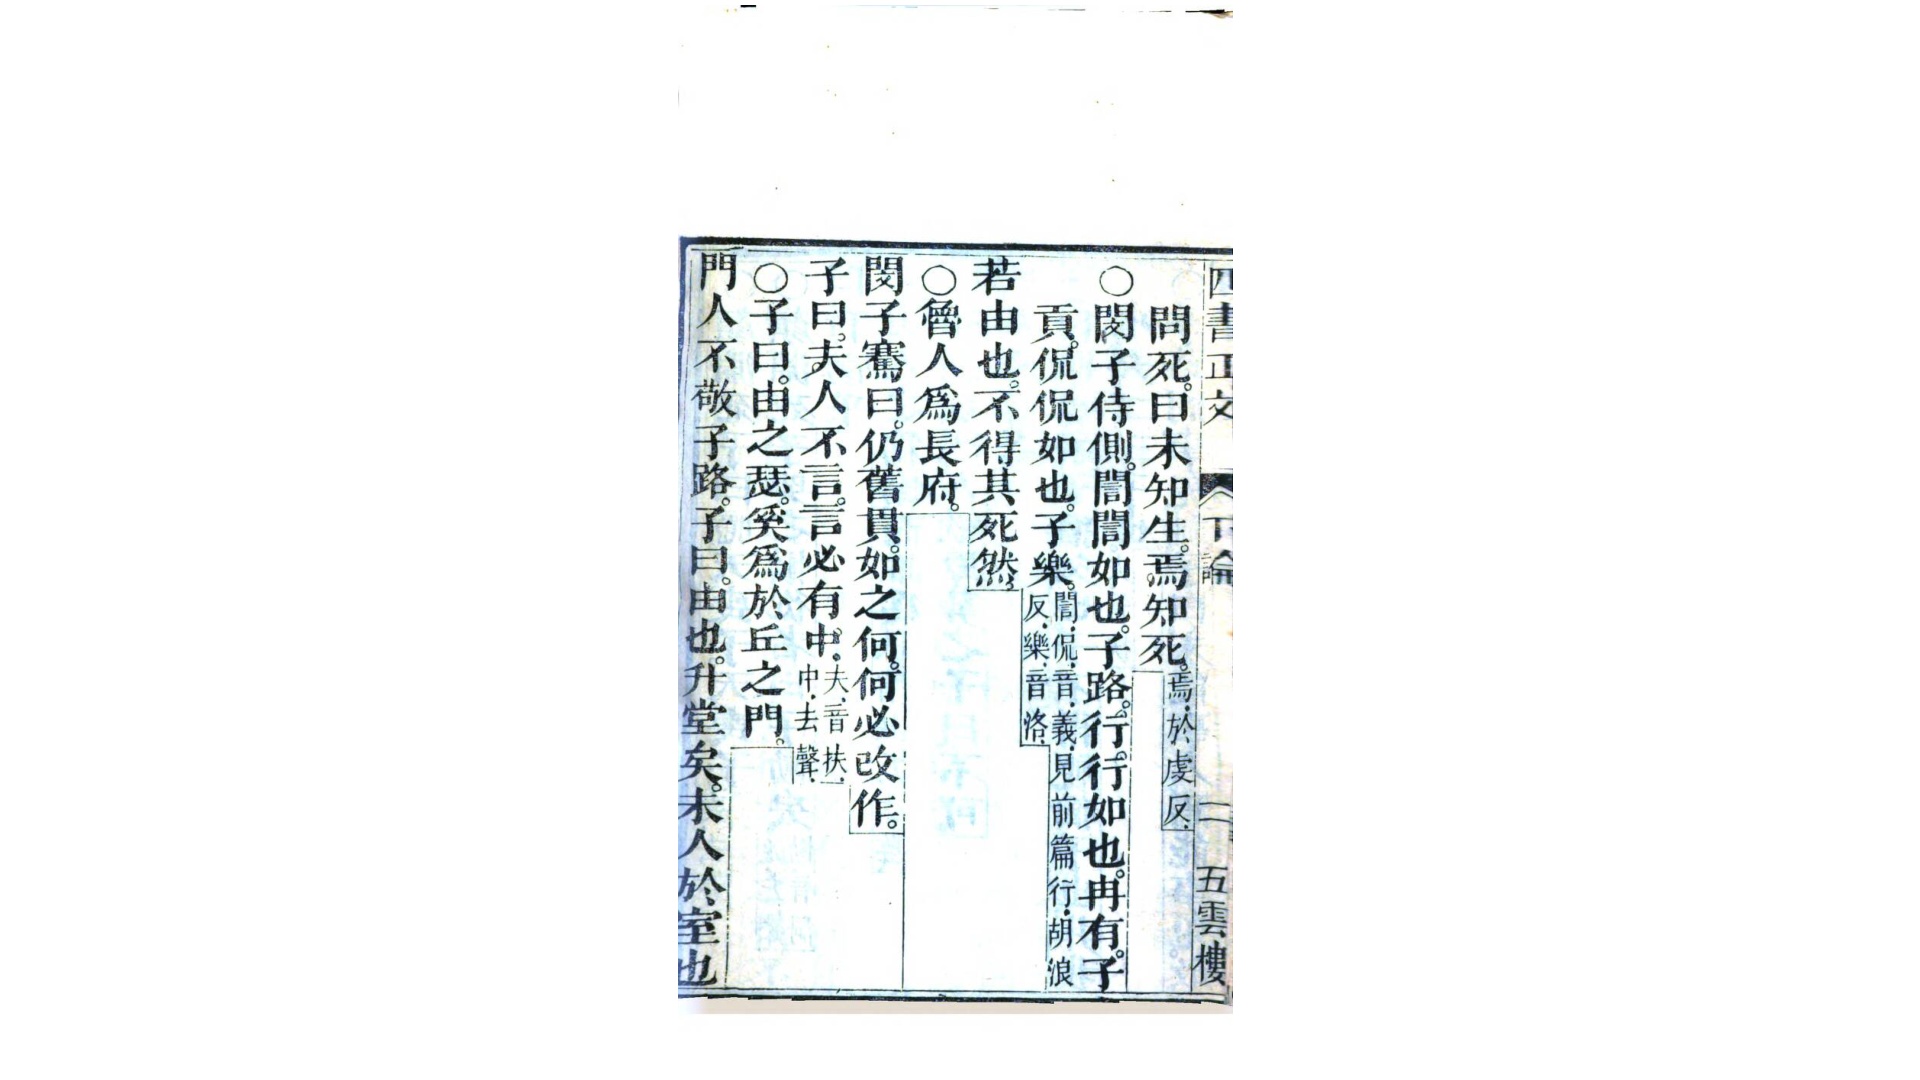 四書正文 下論 二 五雲樓
問死。曰未知生。焉知死。焉於虔反
○閔子侍側。誾誾如也。子路。行行如也。冉有。子
貢。侃侃如也。子樂。誾侃音義見前篇行胡浪反樂音洛
若由也。不得其死然。
○魯人爲長府。
閔子騫曰。仍舊貫。如之何。何必改作。
子曰。夫人不言。言必有中。夫音扶中去聲
○子曰。由之瑟。奚爲於丘之門。
門人不敬子路。子曰。由也。升堂矣。未入於室也